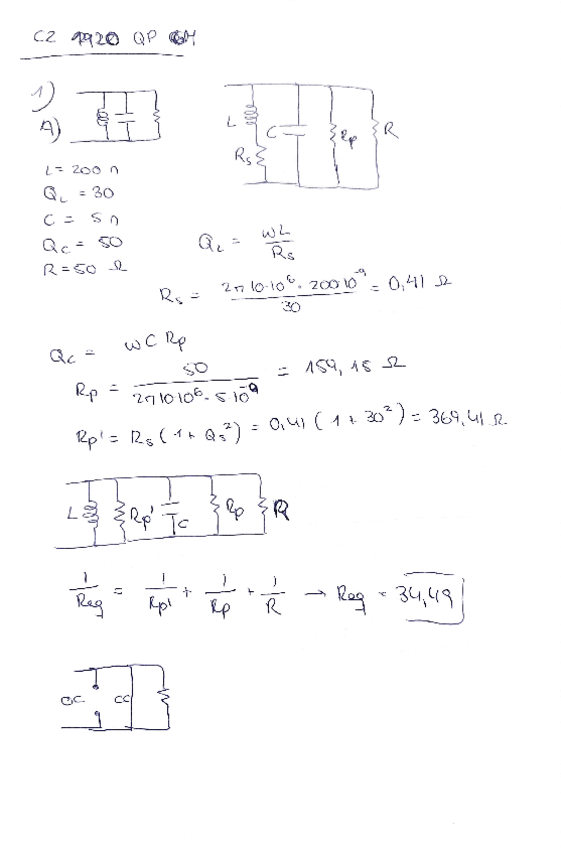 CZ 1920 QP 6M
1)
A)
L C Rp R
Rs
L = 200 n
QL = 30
C = 5 n
Qc = 50
R = 50 Ω
QL = WL / Rs
Rs = 2π 10·10⁶ · 200 10⁻⁹ / 30 = 0,41 Ω
Qc = W C Rp
Rp = 50 / 2π 10 10⁶ · 5 10⁻⁹ = 159,15 Ω
Rp' = Rs (1 + Qs²) = 0,41 (1 + 30²) = 369,41 Ω
L Rp' C Rp R
1/Req = 1/Rp' + 1/Rp + 1/R → Req = 34,49
OC CC